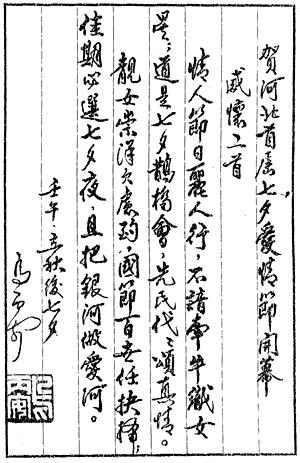 贺河北首届七夕愛情節開幕
感懷二首
情人節日麗人行，不諳牽牛織女
星；道是七夕鵲橋會，先民代代頌真情。
靓女崇洋欠慮，國節百任抉
佳期必選七夕夜，且把銀河做愛河。
壬午立秋後七夕